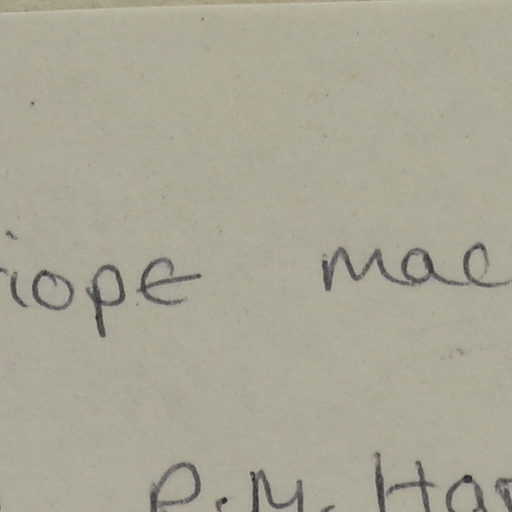 iope mac
P.M. Har